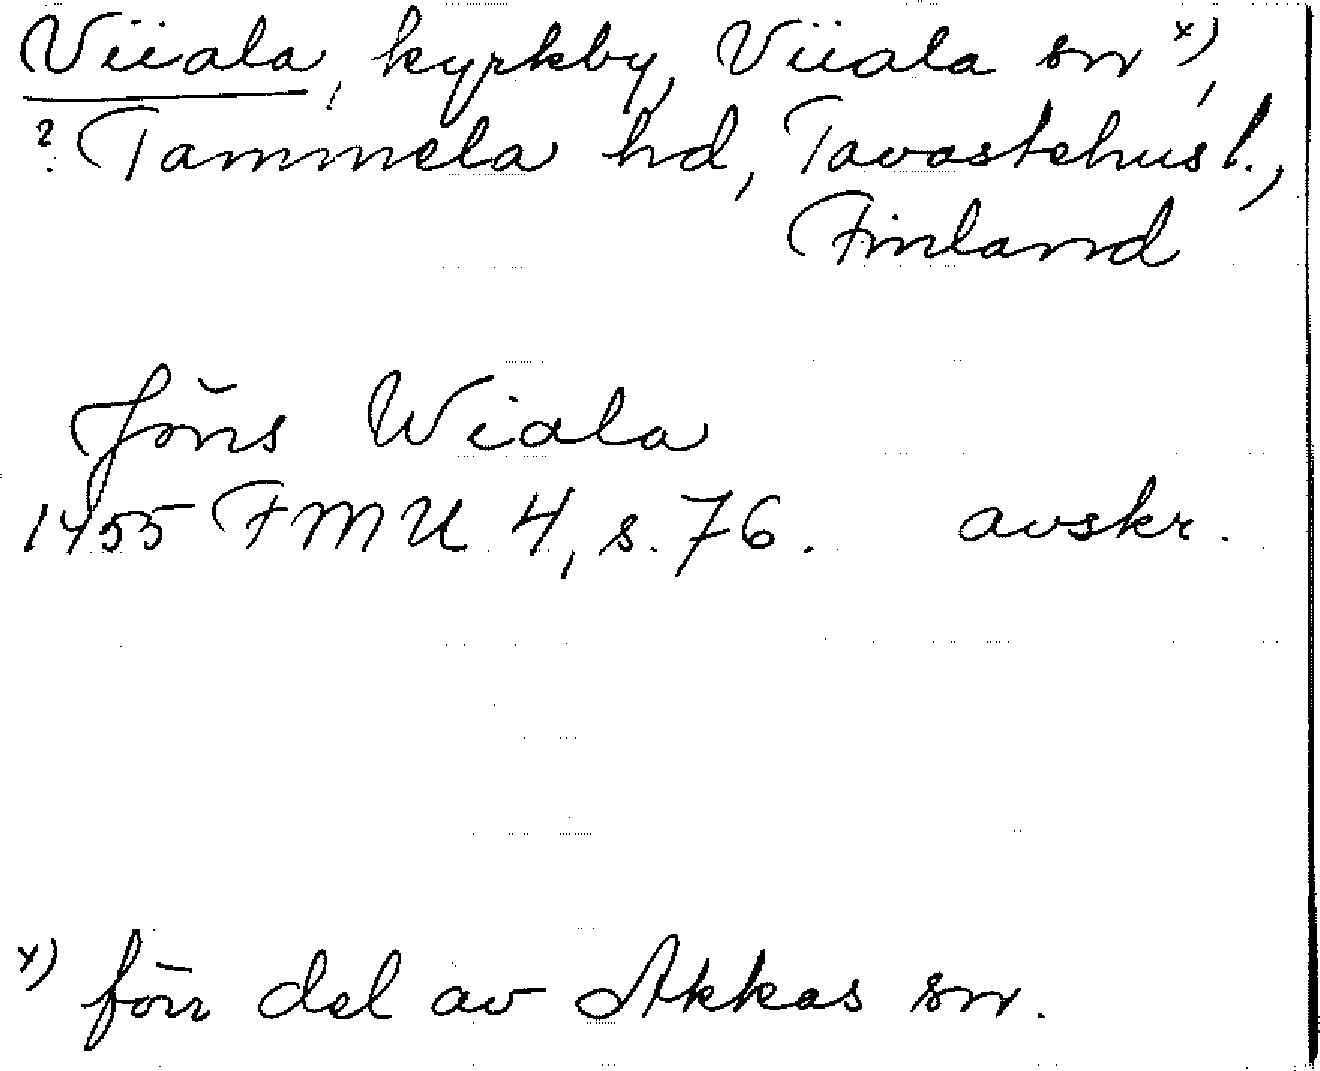 Viiala, kyrkby, Viiala sn x),
? Tammela hd, Tavastehus l.,
Finland
Jöns Wiala
1455 FMU 4, s. 76. avskr.
x) förr del av Akkas sn.